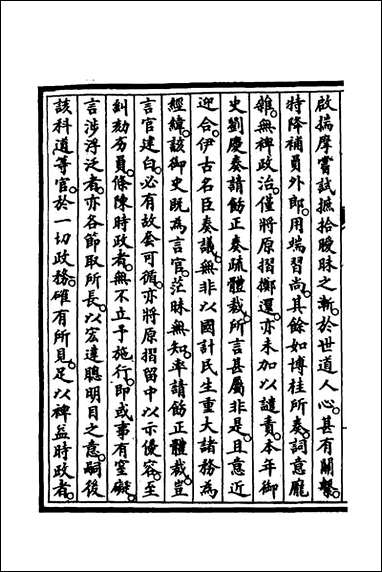 啟揣摩嘗試摭拾曖昧之漸於世道人心甚有關繫
特降補員外郎用端習尚其餘如博桂所奏詞意龐
雜無裨政治僅將原摺擲還亦未加以譴責本年御
史劉慶奏請飭正奏疏體裁所言甚屬非是且意近
迎合伊古名臣奏議無非以國計民生重大諸務為
經緯該御史既為言官茫昧無知率請飭正體裁豈
言官建白必有故套可循亦將原摺留中以示優容至
糾劾劣員條陳時政者無不立予施行即或事有窒礙
言涉浮泛者亦各節取所長以宏達聰明目之意嗣後
該科道等官於一切政務確有所見足以裨益時政者